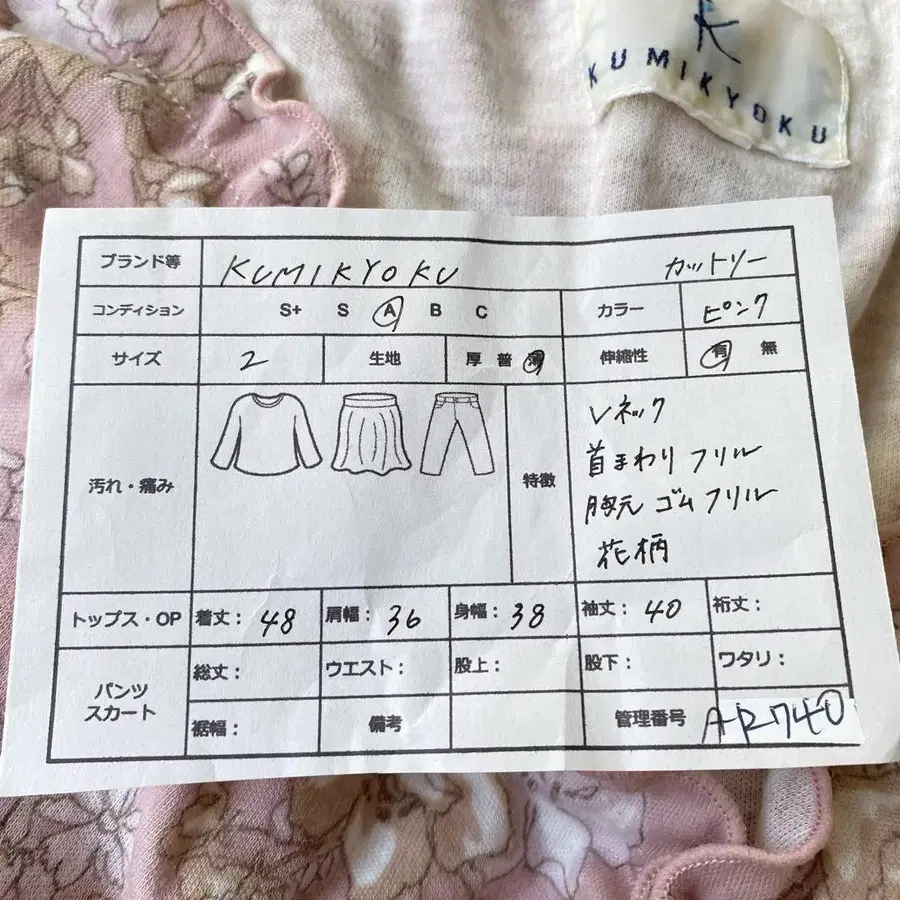 K
KUMIKYOKU
ブランド等 KUMIKYOKU カットソー
コンディション S+ S A B C カラー ピンク
サイズ 2 生地 厚 普 薄 伸縮性 有 無
汚れ・痛み 特徴
Vネック
首まわりフリル
胸元ゴムフリル
花柄
トップス・OP 着丈: 48 肩幅: 36 身幅: 38 袖丈: 40 裄丈:
パンツ
スカート
総丈: ウエスト: 股上: 股下: ワタリ:
裾幅: 備考 管理番号 AR740